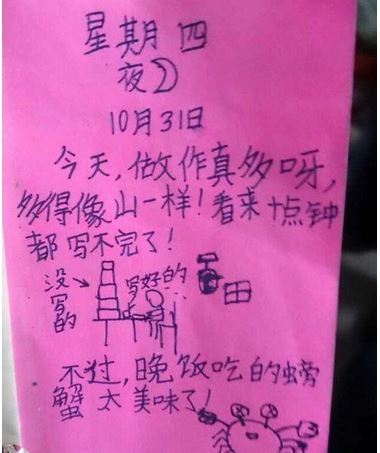 星期四
夜
10月31日
今天,做文作真多呀,
多得像山一样!看来十点钟
都写不完了!
没写的
写好的
不过,晚饭吃的螃
蟹太美味了!